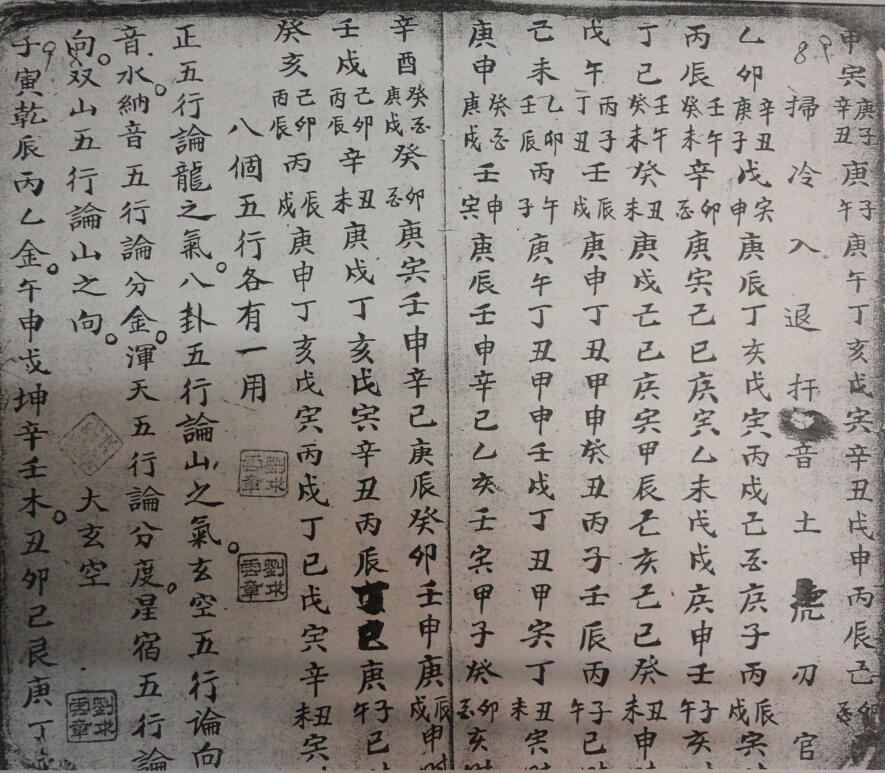 甲寅庚子辛丑庚子午庚午丁亥戊寅辛丑戊申丙辰己卯酉
掃冷入退扞音土虎刃官
乙卯辛丑庚子戊寅申庚辰丁亥戊寅丙戌己酉庚子丙辰戌寅
丙辰壬午癸未辛卯酉庚寅己巳庚寅乙未戊戌庚申壬子午亥
丁巳壬午癸未癸丑未庚戌己巳庚寅甲辰己亥己巳癸丑未申
戊午丙子丁丑壬辰戌庚申丁丑甲申癸丑丙子壬辰丙子午巳
己未乙卯壬辰丙午子庚午丁丑甲申壬戌丁丑甲寅丁丑未寅
庚申癸酉庚戌壬申寅庚辰壬申辛巳乙亥壬寅甲子癸卯酉亥
辛酉癸酉庚戌癸卯酉庚寅壬申辛巳庚辰癸卯壬申庚辰戌申
壬戌己卯丙辰辛丑未庚戌丁亥戊寅辛丑丙辰丁巳庚子午巳
癸亥己卯丙辰丙辰戌庚申丁亥戊寅丙戌丁巳戊寅辛丑未寅
八個五行各有一用
正五行論龍之氣。八卦五行論山之氣。玄空五行论向
音水。納音五行論分金。渾天五行論分度。星宿五行論
向。双山五行論山之向。大玄空
子寅乾辰丙乙金。午申戌坤辛壬木。丑卯己艮庚丁